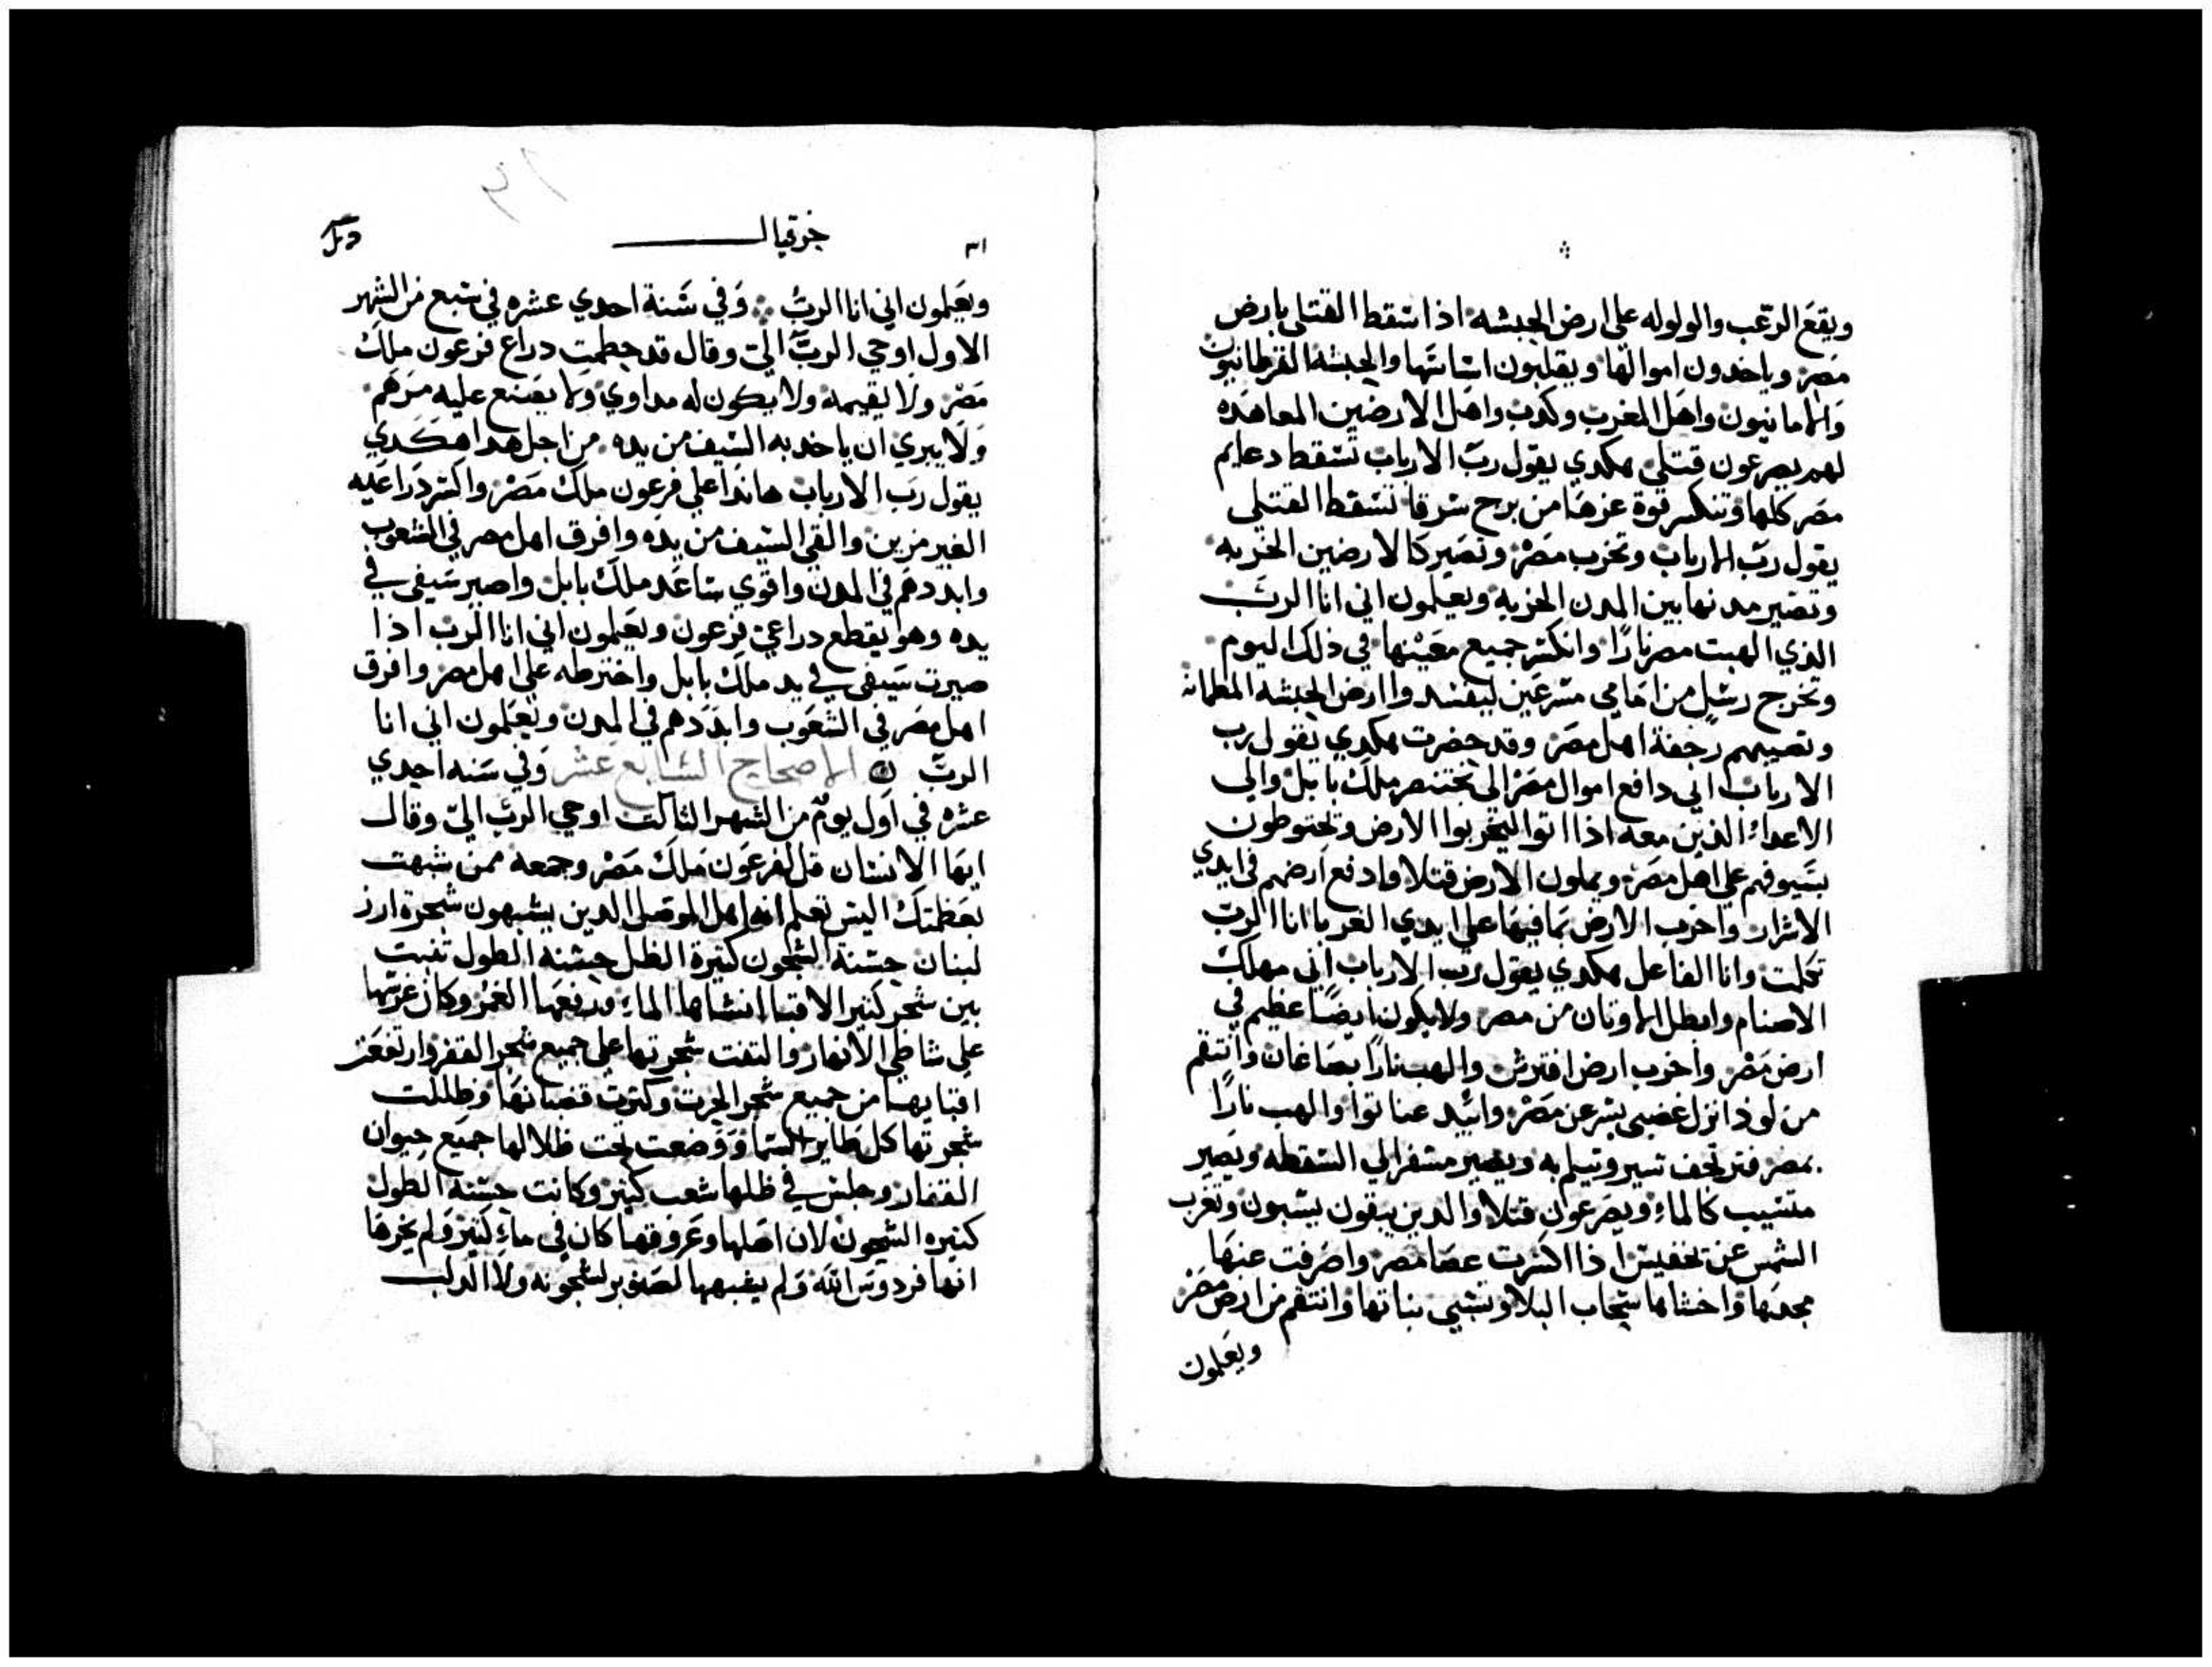 ويقع الرعب والولوله على ارض الحبشه اذا سقط القتلى بارض
مصر وياخدون اموالها ويقلبون اساستها والحبشة القرطانيون
والامانيون واهل المغرب وكدب واهل الارضين المعاهده
لهم يصرعون قتلى هكدي يقول رب الارباب تسقط دعايم
مصر كلها وتنكسر قوة عزها من برج شرقا تسقط القتلى
يقول رب الارباب وتخرب مصر وتصير كالارضين الخربه
وتصير مدنها بين المدن الخربه ويعلمون اني انا الرب
الذي الهبت مصر نارا وانكسر جميع معينها في ذلك اليوم
وتخرج رسل من امامي مسرعين ليفسدوا ارض الحبشه المطمانه
وتصيبهم رجفة اهل مصر وقد حضرت هكدي يقول رب
الارباب اني دافع اموال مصر الى بختنصر ملك بابل والي
الاعداء الذين معه اذا اتوا ليخربوا الارض ويخترطون
بسيوفهم على اهل مصر ويملون الارض قتلا وادفع ارضهم في ايدي
الاشرار واخرب الارض بما فيها على ايدي الغربا انا الرب
تكلمت وانا الفاعل هكدي يقول رب الارباب اني مهلك
الاصنام وابطل الاوتان من مصر ولا يكون ايضا عظيم في
ارض مصر واخرب ارض افترش والهب نارا بصاغان وانتقم
من لود انزل غضبي بشر عز مصر وابيد عنا نوا والهب نارا
بمصر فترتجف تسير وتيلم به ويصير مشفرالي السقطه ويصير
متسيب كالماء ويصرعون قتلا والدين يبقون يسبون وتغرب
الشمس عن تحفيس اذا اكسرت عصا مصر واصرفت عنها
مجدها واحشاها سحاب البلا وتسبي بناتها وانتقم من ارض مصر
ويعلمون
٣١ خزقيال
ويعلمون اني انا الرب وفي سنة احدي عشره في سبع من الشهر
الاول اوحي الرب الي وقال قد حطمت دراع فرعون ملك
مصر ولا يقيمه ولا يكون له مداوي ولا يصنع عليه مرهم
ولا يبري ان ياخد به السيف من يده من اجل هدا هكدي
يقول رب الارباب هاندا على فرعون ملك مصر واكسر دراعيه
الغير مزين والقي السيف من يده وافرق اهل مصر في الشعوب
وابددهم في المدن واقوي ساعد ملك بابل واصير سيفي في
يده وهو يقطع دراعي فرعون ويعلمون اني انا الرب اذا
صيرت سيفي في يد ملك بابل واخترطه على اهل مصر وافرق
اهل مصر في الشعوب وابددهم في المدن ويعلمون اني انا
الرب الاصحاح السابع عشر وفي سنه احدي
عشره في اول يوم من الشهر التالت اوحي الرب الي وقال
ايها الانسان قل لفرعون ملك مصر وجمعه ممن شبهت
بعظمتك اليس تعلم انه اهل الموصل الدين يشبهون شجرة ارز
لبنان حسنة الشجون كثيرة الظل حسنه الطول تفيت
بين شجر كثير الاقنا انشاها الماء ورفعها الغمر وكان غرسها
على شاطي الانهار والتفت شجرتها على جميع شجر القفر وارتفعت
اقنابها من جميع شجر الحرت وكترت قضبانها وظللت
شجرتها كل طاير السما ووضعت تحت ظلالها جميع حيوان
القفار وجلس في ظلها شعب كثير وكانت حسنه الطول
كثيره الشجون لان اصلها وعروقها كان في ماء كثير ولم يخرها
انها فردوس الله ولم يشبهها الصنوبر لشجونه ولا الدلب